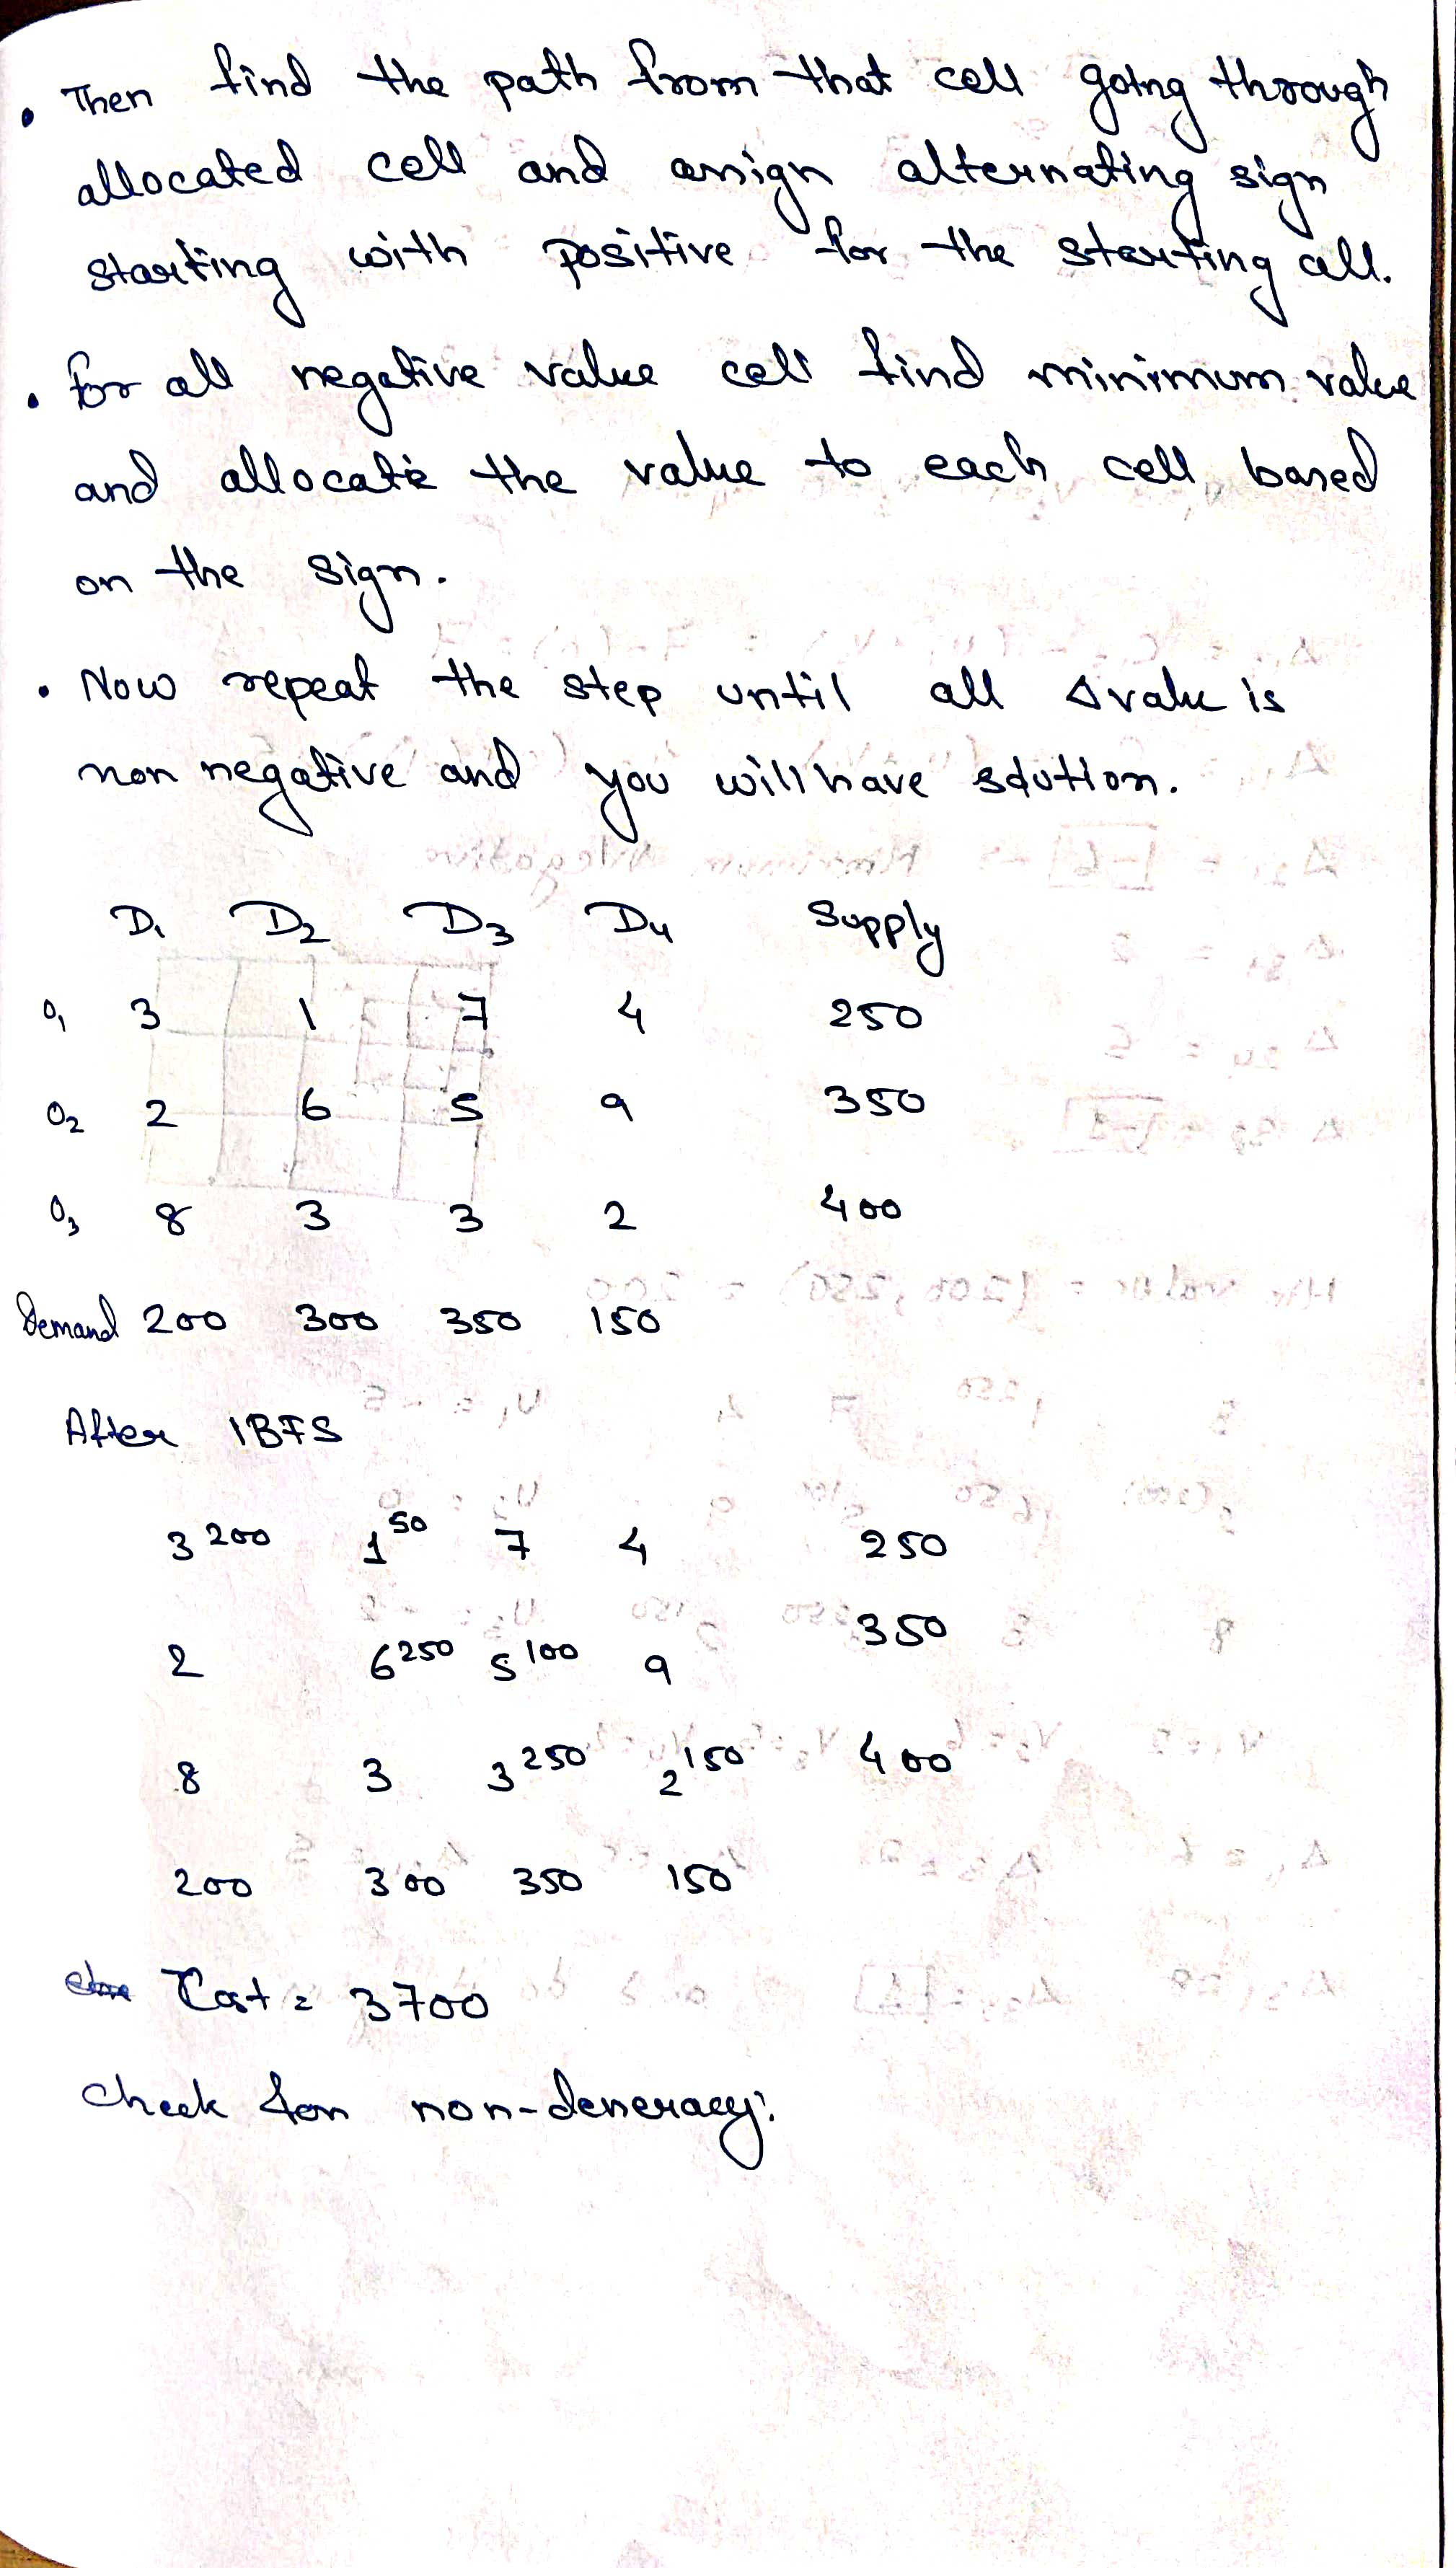 • Then find the path from that cell going through
allocated cell and assign alternating sign
starting with positive for the starting cell.
• for all negative value cell find minimum value
and allocate the value to each cell based
on the sign.
• Now repeat the step until all Δ value is
non negative and you will have solution.
D1 D2 D3 D4 Supply
O1 3 1 7 4 250
O2 2 6 5 9 350
O3 8 3 3 2 400
Demand 200 300 350 150
After IBFS
3 200 1 50 7 4 250
2 6 250 5 100 9 350
8 3 3 250 2 150 400
200 300 350 150
Cost = 3700
Check for non-deneracy: